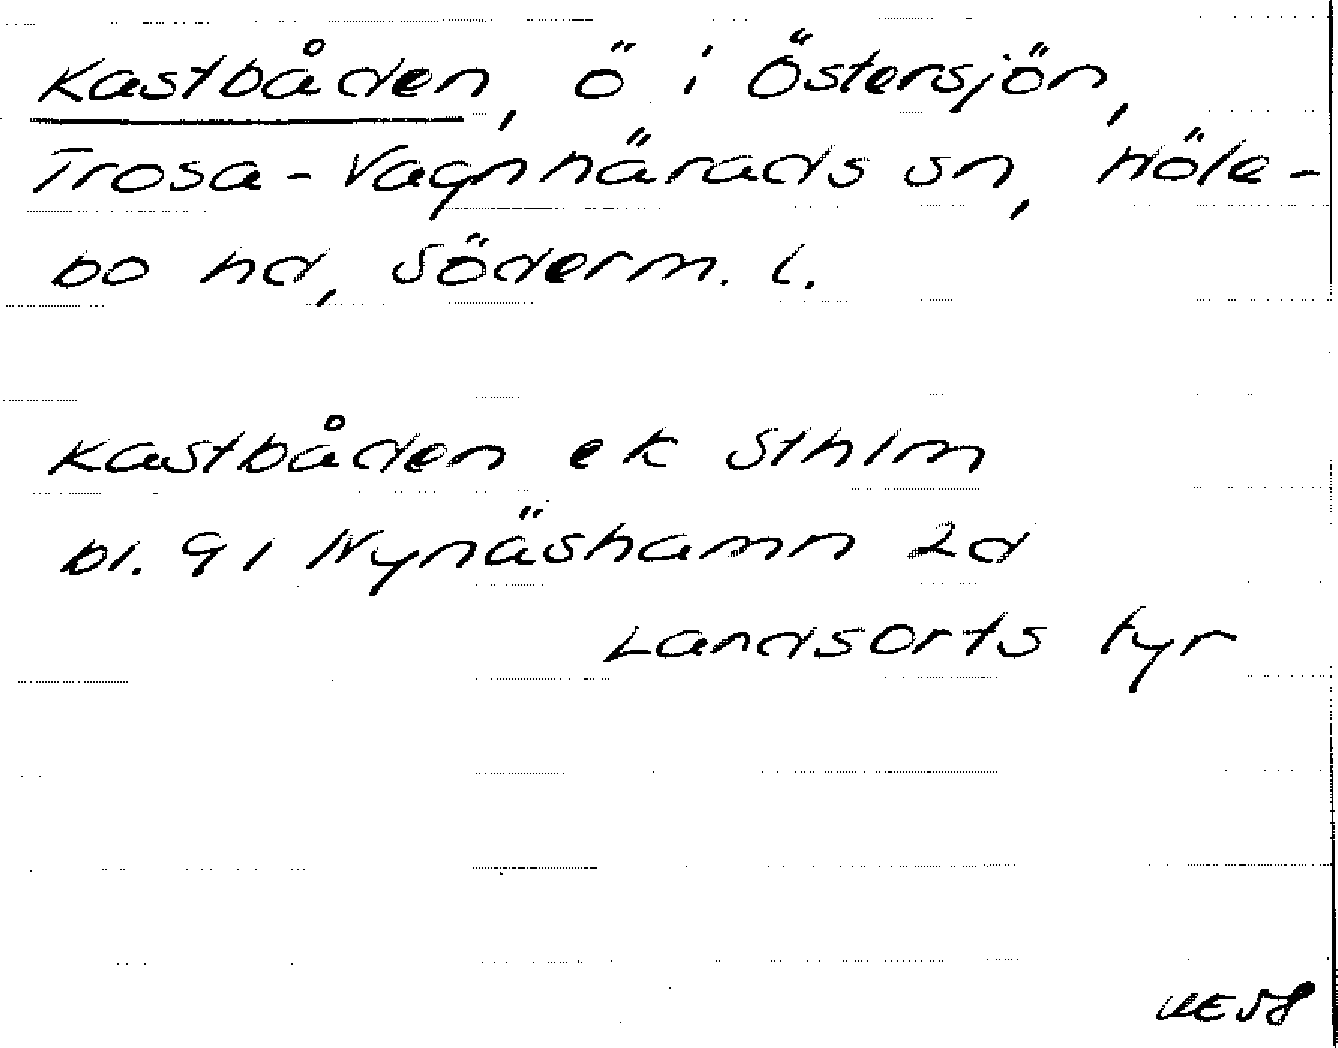 Kastbåden, ö i Östersjön,
Trosa-Vagnhärads sn, Höle-
bo hd, Söderm. l.
Kastbåden ek Sthlm
bl. 91 Nynäshamn 2d
Landsorts fyr